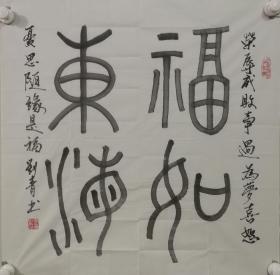 榮辱成敗事過為夢喜怒
福如
東海
憂思隨緣是福 劉青書